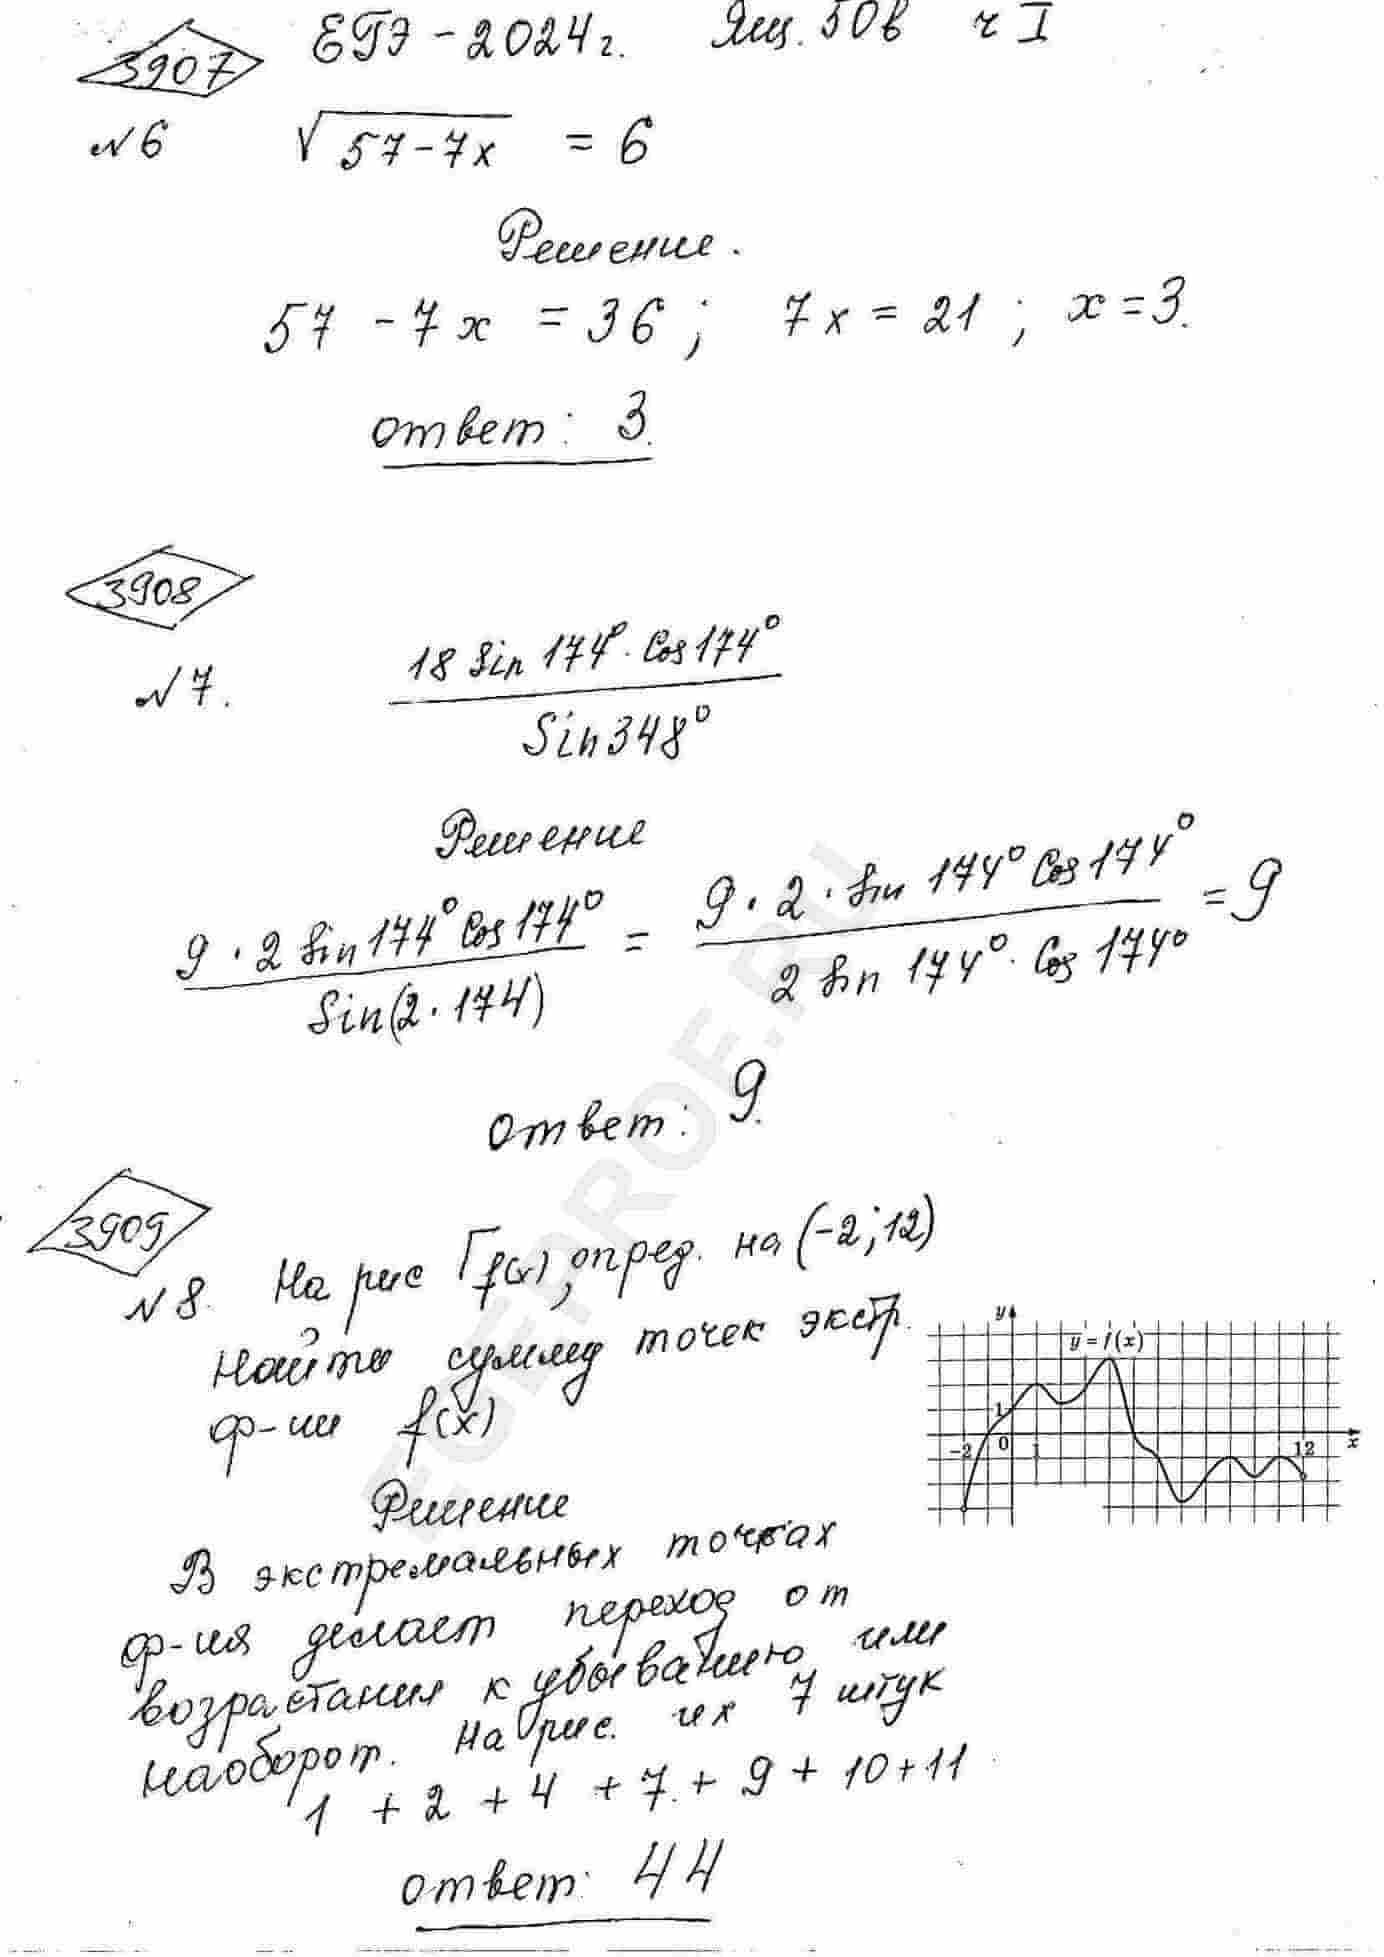 3907 ЕГЭ - 2024г. Ящ. 50в ч I
№6 √57-7x = 6
Решение.
57 - 7x = 36 ; 7x = 21 ; x = 3.
ответ: 3.
3908
18 Sin 174° · Cos 174°
№7.
Sin 348°
Решение
9 · 2 Sin 174° Cos 174° = 9 · 2 · Sin 174° Cos 174° = 9
Sin(2 · 174) 2 Sin 174° · Cos 174°
ответ: 9.
3909
№8. На рис Гf(x), опред. на (-2; 12)
Найти сумму точек экстр.
ф-ии f(x)
y
y = f(x)
1
-2 0 1 12 x
Решение
В экстремальных точках
ф-ия делает переход от
возрастания к убыванию или
наоборот. На рис. их 7 штук
1 + 2 + 4 + 7 + 9 + 10 + 11
ответ: 44
EGEPROF.RU